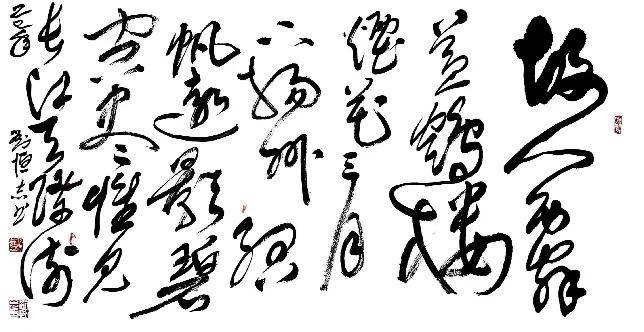 故人西辭
黃鶴樓
煙花三月
下揚州孤
帆遠影碧
空盡惟見
長江天際流